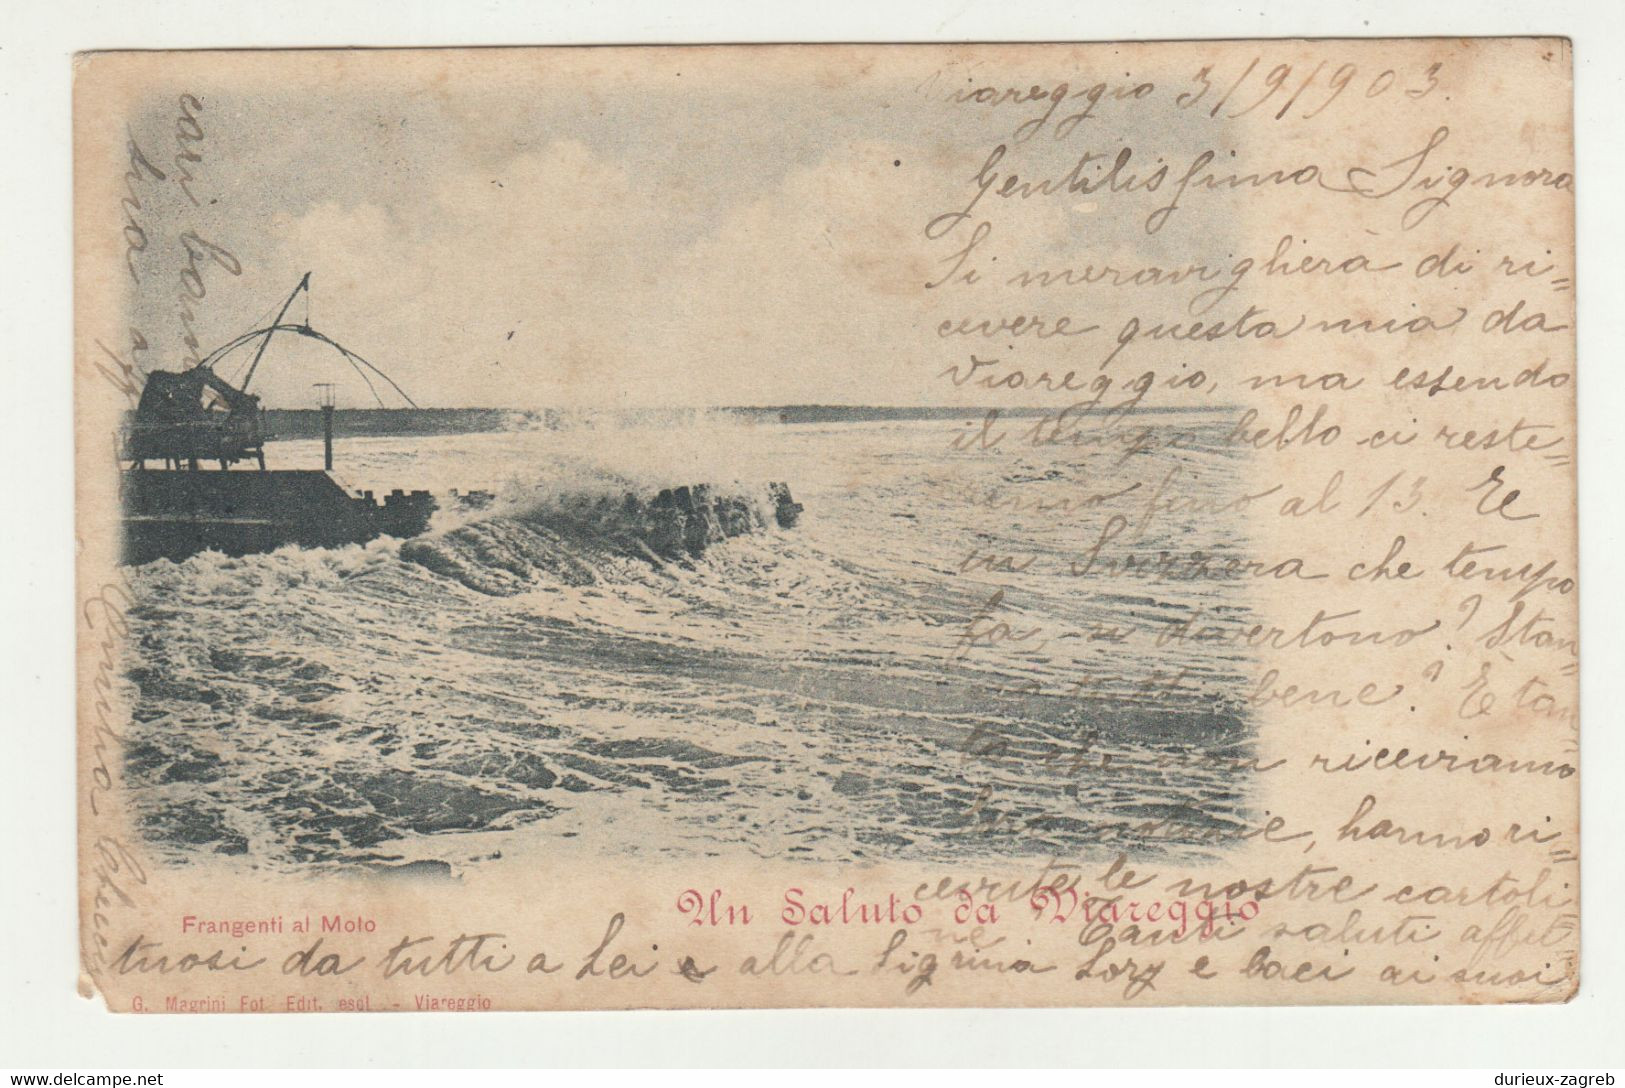 Viareggio 3/9/903.
Gentilissima Signora
Si meraviglierà di ri=
cevere questa mia da
Viareggio, ma essendo
il tempo bello ci reste=
remo fino al 13. E
in Svizzera che tempo
fa, si divertono? Stan=
no tutti bene? È tan=
to che non riceviamo
loro notizie, hanno ri=
cevute le nostre cartoli=
ne Tanti saluti affet=
tuosi da tutti a Lei e alla Signina Lory e baci ai suoi
cari bam
bina aff
Annita
Un Saluto da Viareggio
Frangenti al Molo
G. Magrini Fot. Edit. escl. - Viareggio
delcampe.net
durieux-zagreb